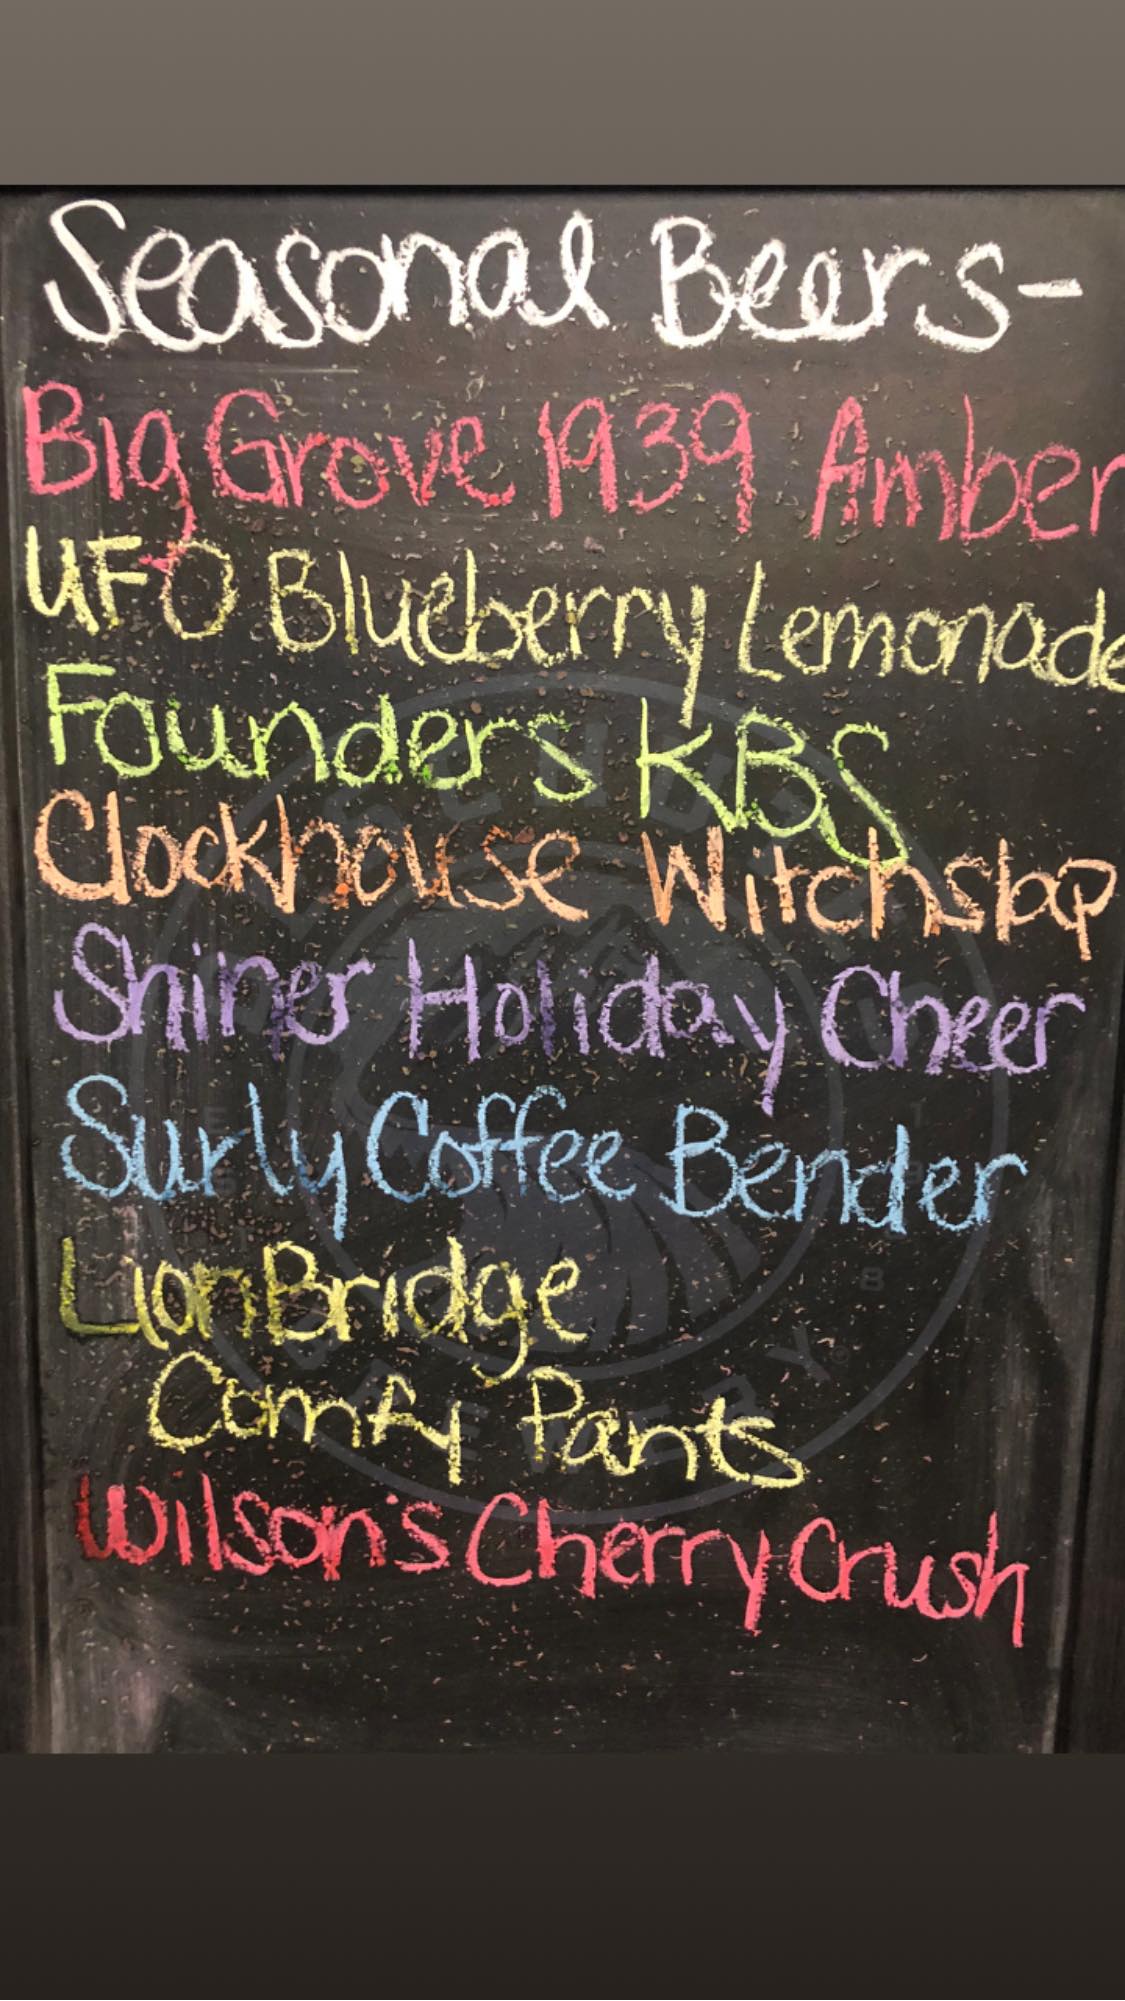 Seasonal Beers-
Big Grove 1939 Amber
UFO Blueberry Lemonade
Founders KBS
Clockhouse Witchslap
Shiner Holiday Cheer
Surly Coffee Bender
LionBridge
Comfy Pants
Wilson's Cherry Crush